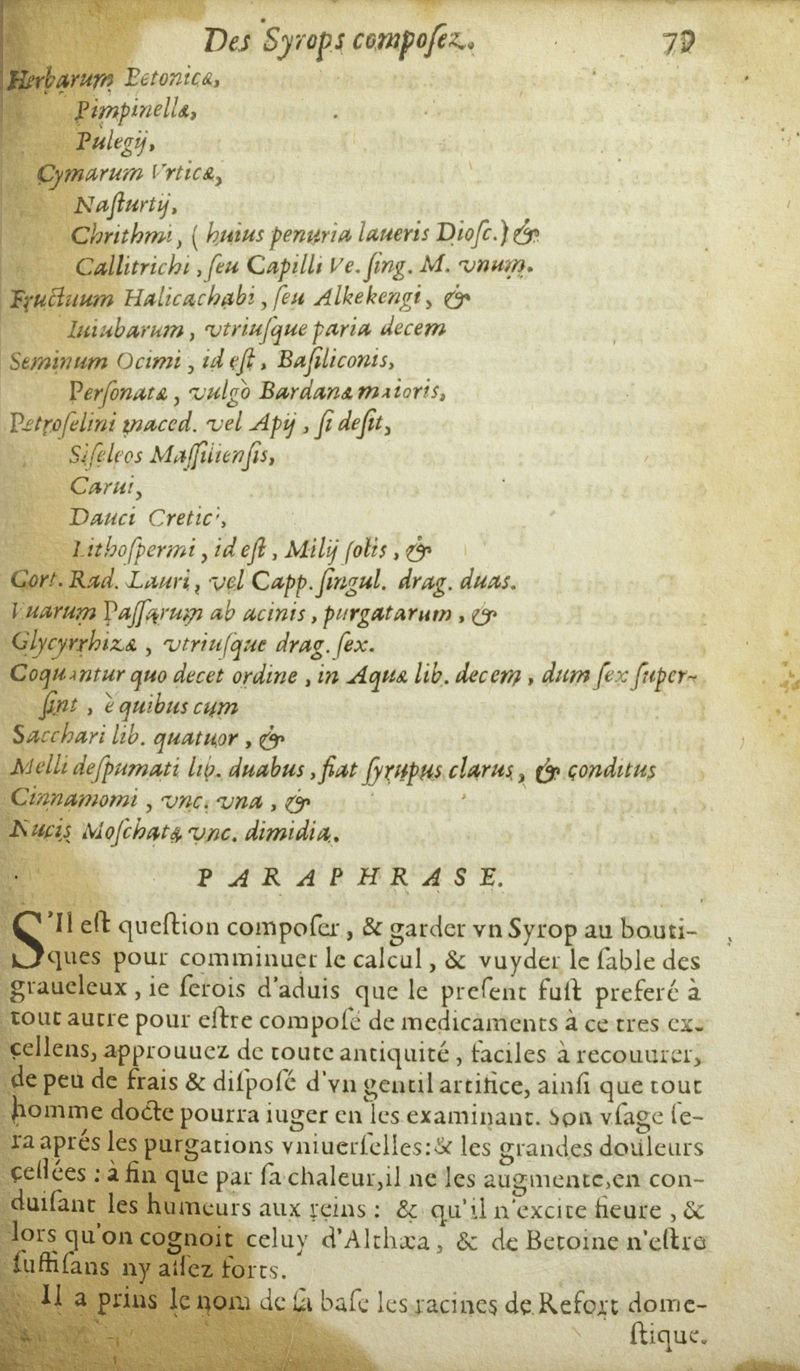 Des Syrops compoſez. 79
Herbarum Betonicæ,
Pimpinellæ,
Pulegij,
Cymarum Vrticæ,
Naſturtij,
Chrithmi, ( huius penuria laueris Dioſc.) &
Callitrichi, ſeu Capilli Ve. ſing. M. vnum.
Fructuum Halicachabi, ſeu Alkekengi, &
Iuiubarum, vtriuſque paria decem
Seminum Ocimi, id eſt, Baſiliconis,
Perſonatæ, vulgò Bardanæ maioris,
Petroſelini maced. vel Apij, ſi deſit,
Siſeleos Maſſilienſis,
Carui,
Dauci Cretici,
Lithoſpermi, id eſt, Milij ſolis, &
Cort. Rad. Lauri, vel Capp. ſingul. drag. duas.
Vuarum Paſſarum ab acinis, purgatarum, &
Glycyrrhizæ, vtriuſque drag. ſex.
Coquantur quo decet ordine, in Aquæ lib. decem, dum ſex ſuper-
ſint, è quibus cum
Sacchari lib. quatuor, &
Melli deſpumati lib. duabus, fiat ſyrupus clarus, & conditus
Cinnamomi, vnc. vna, &
Nucis Moſchatæ vnc. dimidia.
PARAPHRASE.
S'Il eſt queſtion compoſer, & garder vn Syrop au bouti-
ques pour comminuer le calcul, & vuyder le ſable des
graueleux, ie ſerois d'aduis que le preſent fuſt preferé à
tout autre pour eſtre compoſé de medicaments à ce tres ex-
cellens, approuuez de toute antiquité, faciles à recouurer,
de peu de frais & diſpoſé d'vn gentil artifice, ainſi que tout
homme docte pourra iuger en les examinant. Son vſage ſe-
ra aprés les purgations vniuerſelles: & les grandes douleurs
ceſſées : à fin que par ſa chaleur, il ne les augmente, en con-
duiſant les humeurs aux reins : & qu'il n'excite fieure, &
lors qu'on cognoit celuy d'Althæa, & de Betoine n'eſtre
ſuffiſans ny aſſez forts.
Il a prins le nom de ſa baſe les racines de Refort dome-
ſtique.